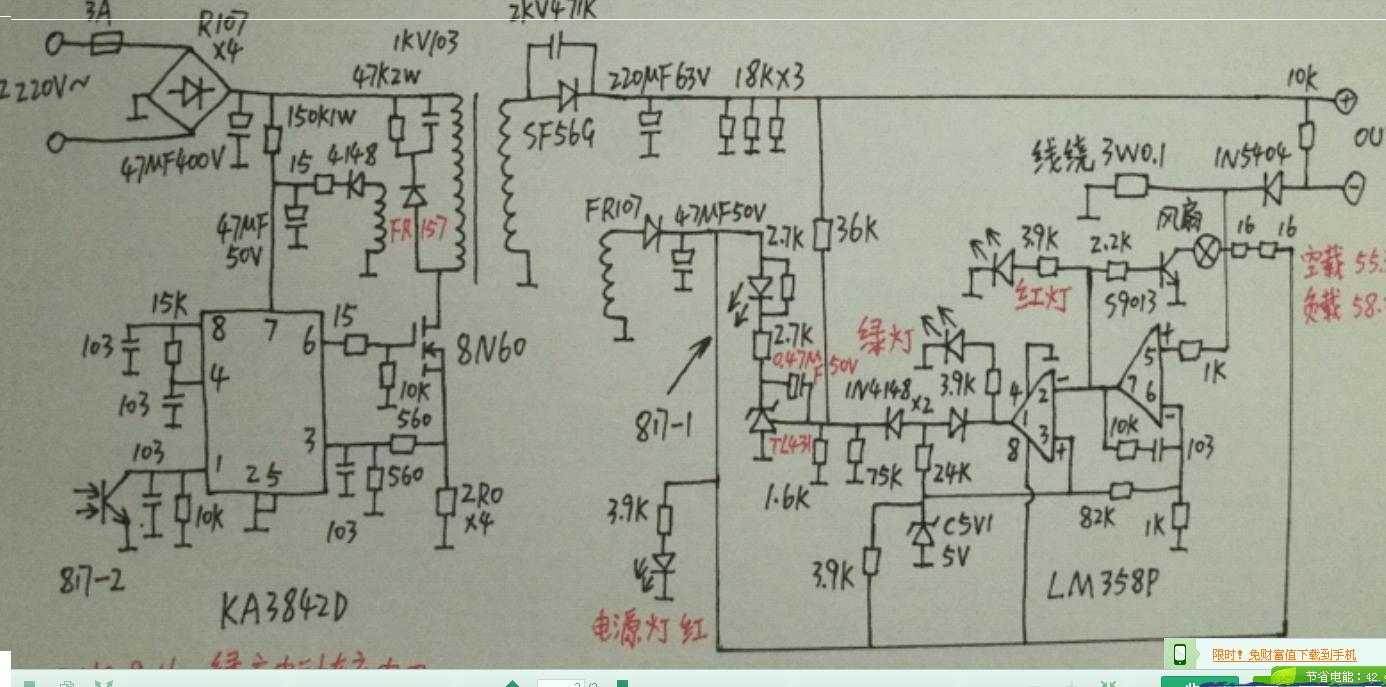 3A
R107
×4
2KV471K
1KV103
47K2W
220V~
150K1W
220MF63V
18K×3
10K
SF56G
47MF400V
15
4148
线绕 3W0.1
1N5404
47MF
50V
FR157
FR107
47MF50V
2.7K
36K
风扇
16
16
3.9K
2.2K
S9013
红灯
空载 55.
负载 58.
15K
103
8
7
6
4
3
1
2 5
15
8N60
10K
560
560
103
103
10K
103
2R0
×4
817-2
KA3842D
817-1
2.7K
0.47M
F 50V
TL431
绿灯
3.9K
1N4148
×2
4
2
1
3
8
-
+
7
5
6
+
-
1K
10K
103
1.6K
75K
24K
82K
1K
3.9K
C5V1
5V
3.9K
LM358P
电源灯 红
限时！免财富值下载到手机
节省电能：42.